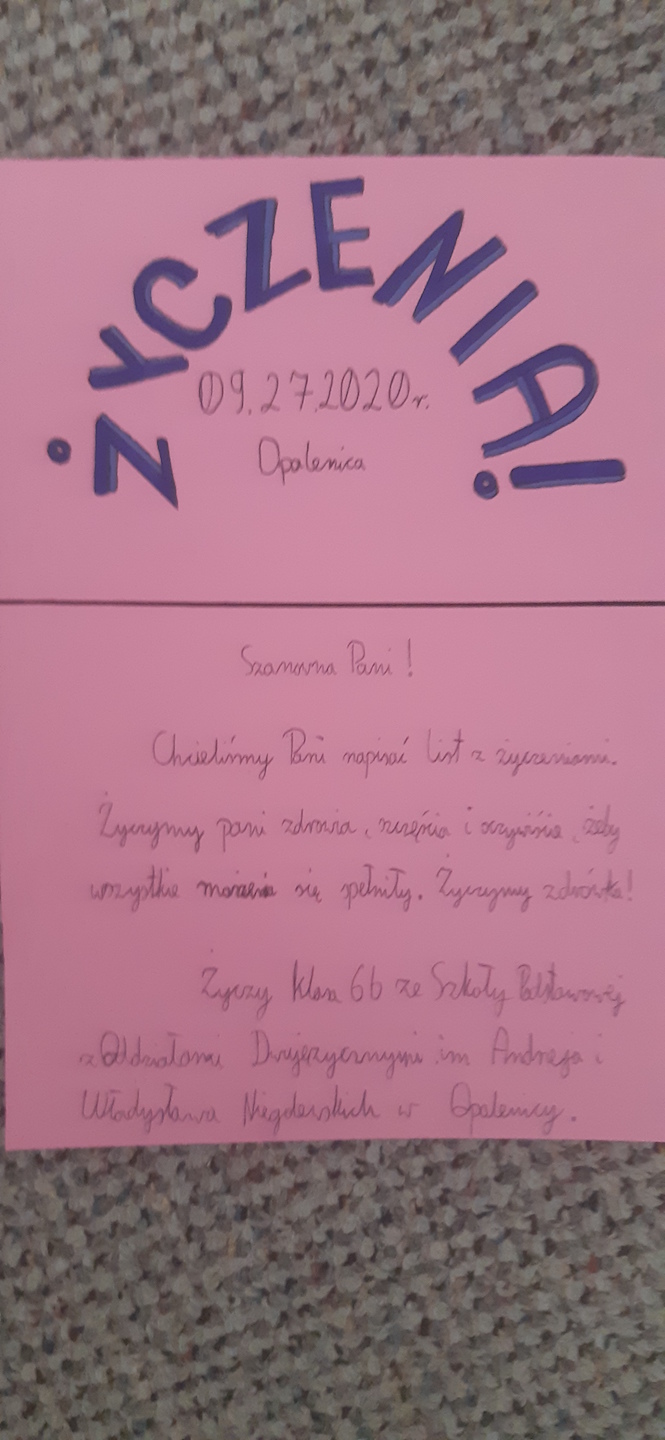 ŻYCZENIA!
09.27.2020r.
Opalenica
Szanowna Pani!
Chcieliśmy Pani napisać list z życzeniami.
Życzymy pani zdrowia, szczęścia i oczywiście, żeby
wszystkie marzenia się spełniły. Życzymy zdrówka!
Życzy klasa 6b ze Szkoły Podstawowej
z Oddziałami Dwujęzycznymi im. Andrzeja i
Władysława Niegolewskich w Opalenicy.